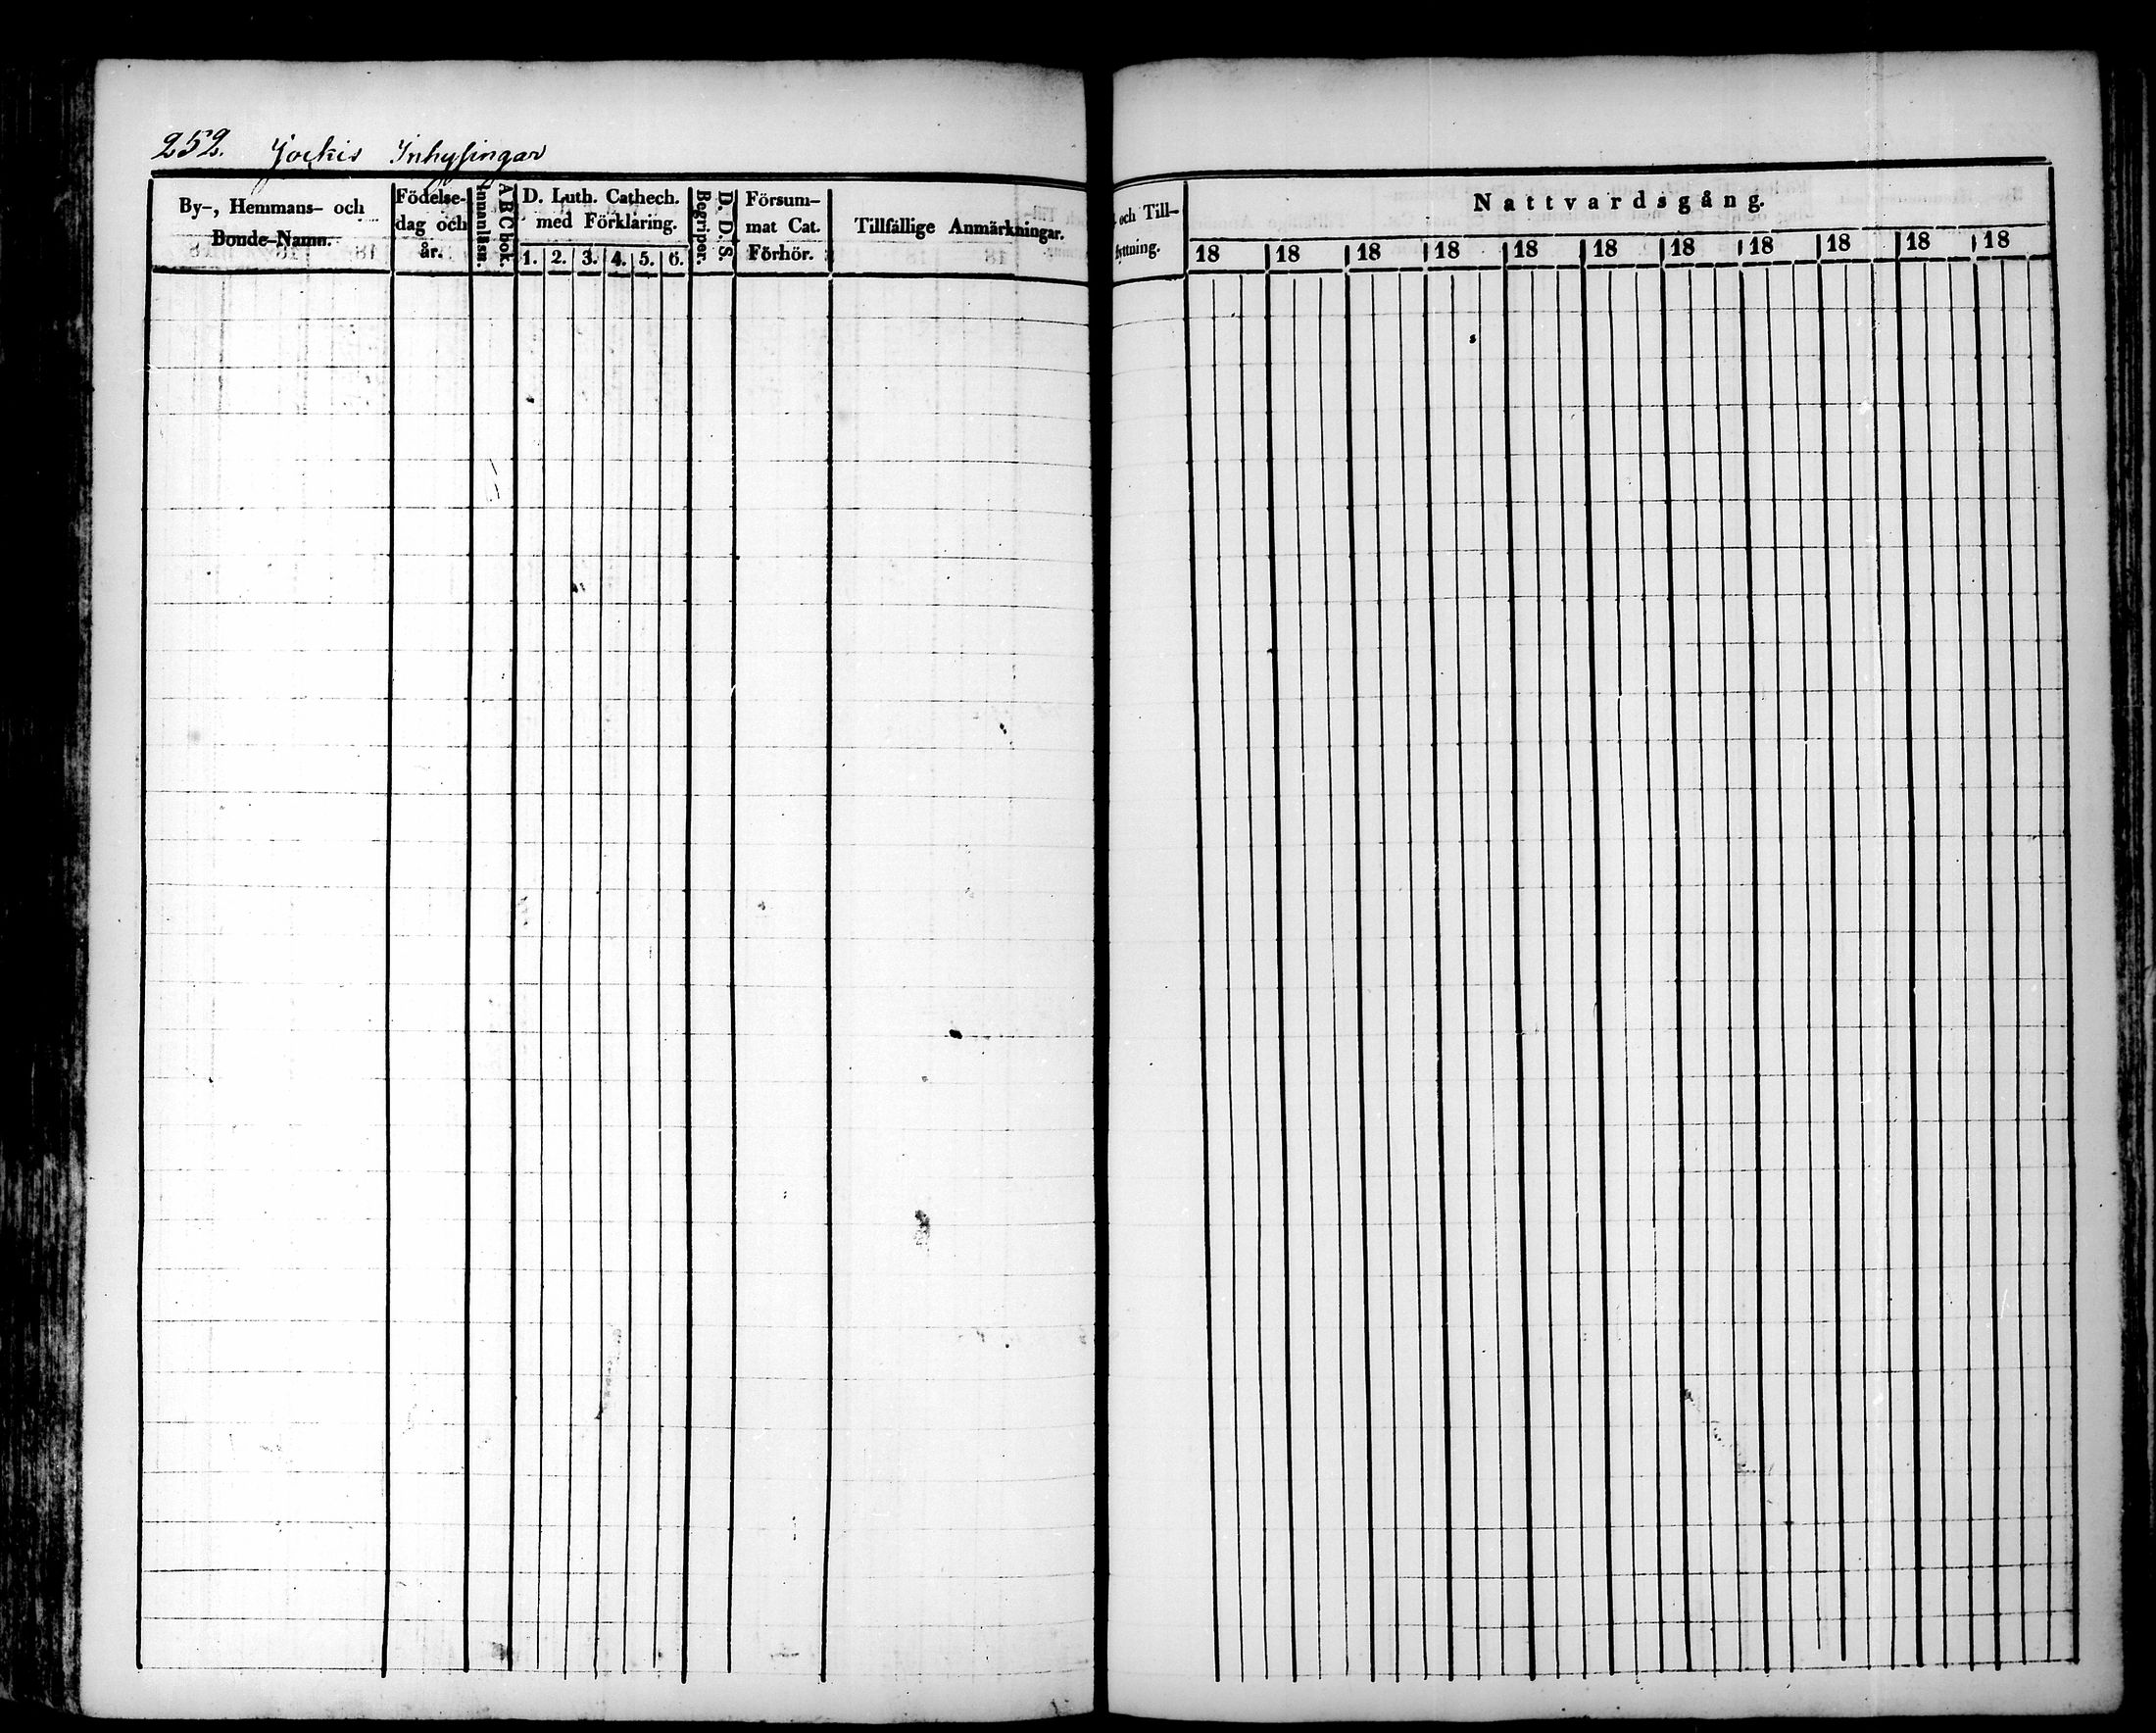 252. Jockis Inhysingar
By-, Hemmans- och
Bonde-Namn.
Födelse-
dag och
år.
Innanläsn.
ABC bok.
D. Luth. Cathech.
med Förklaring.
1. 2. 3. 4. 5. 6.
Begriper.
D. D. S.
Försum-
mat Cat.
Förhör.
Tillfällige Anmärkningar.
och Till-
fyttning.
Nattvardsgång.
18 18 18 18 18 18 18 18 18 18 18